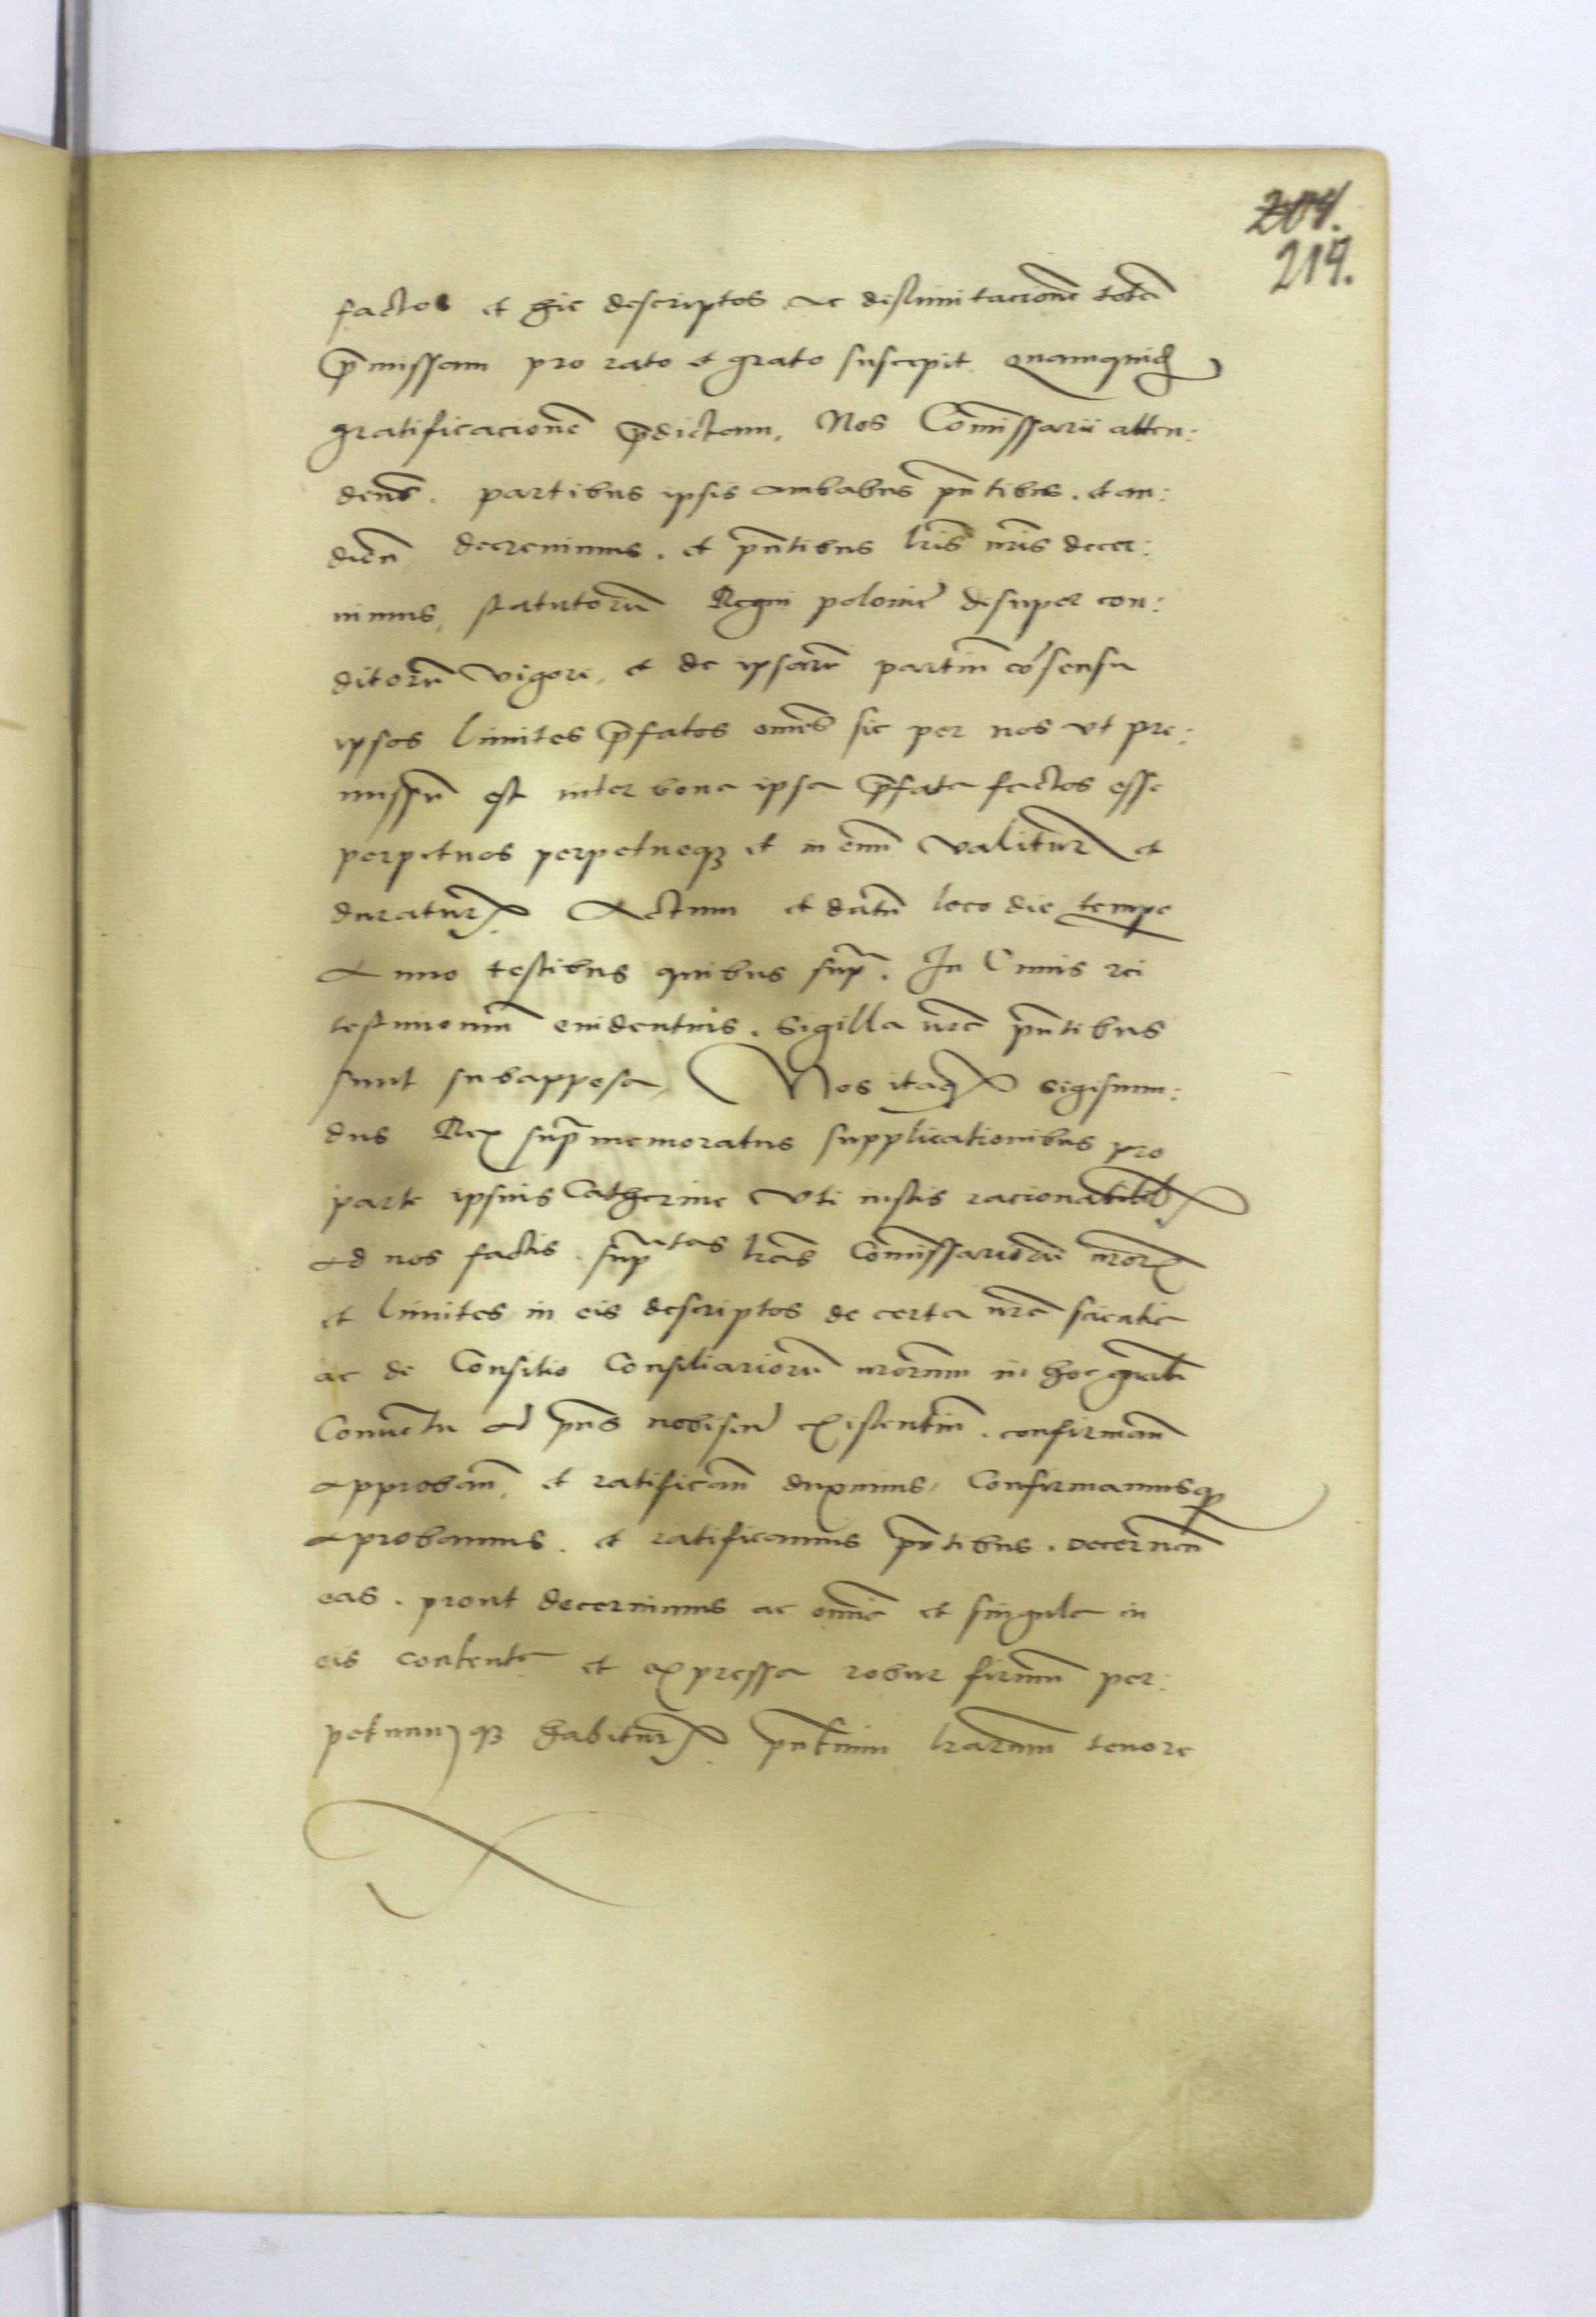 204.
219.
factos et hic descriptos ac dislimitacionē totā
p̄missam pro rato et grato suscepit quamquid̄
gratificacionē p̄dictam, Nos Com̄issarii atten:
den̄s. partibus ipsis ambabus pn̄tibus. et au:
dien̄ decrevimus. et pn̄tibus lr̄is nr̄is decer:
nimus, statutorū Regni polonie desuper con:
ditorū vigore, et de ipsarū partiū cōsensu
ipsos limites p̄fatos om̄es sic per nos ut pre:
missū est inter bona ipsa p̄fata factos esse
perpetuos perpetueqz et in evū valitur̄ et
duratur̄. Actum et datū loco die tempe
Anno testibus quibus sup̄. In Cuius rei
testimoniū evidentius. Sigilla nr̄a pn̄tibus
sunt subappesa, Nos itaq̄ Sigismun:
dus Rex sup̄memoratus supplicationibus pro
parte ipsius Catherine uti iustis racionabilib
ad nos factis. sup̄tas lr̄as Com̄issariorū nr̄or
et limites in eis descriptos de certa nr̄a scientia
ac de Consilio Consiliariorū nr̄orum in hoc gn̄ali
Conventu ad pn̄s nobiscū existentiū. confirman̄
approban̄, et ratifican̄ duximus, Confirmamusqz
aprobamus. et ratificamus pn̄tibus. decernen̄
eas. prout decernimus ac om̄ia et singula in
eis contenta et expressa robur firmū per:
petuumqz habitur̄. pn̄tium lr̄arum tenore